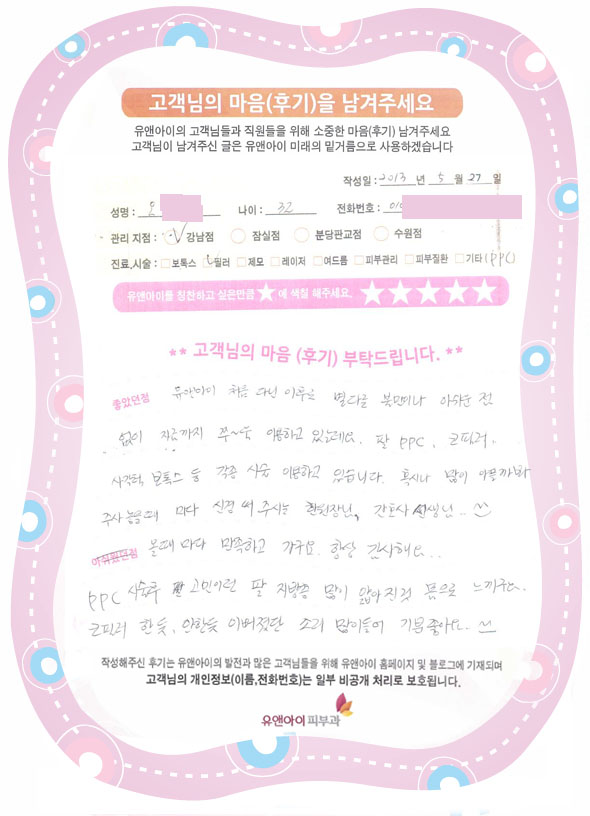 고객님의 마음(후기)을 남겨주세요
유앤아이의 고객님들과 직원들을 위해 소중한 마음(후기) 남겨주세요
고객님이 남겨주신 글은 유앤아이 미래의 밑거름으로 사용하겠습니다
작성일 : 2013 년 5 월 27 일
성명 : 오 나이 : 32 전화번호 : 010
관리 지점 : 강남점 잠실점 분당판교점 수원점
진료,시술 : 보톡스 필러 제모 레이저 여드름 피부관리 피부질환 기타 (PPC)
유앤아이를 칭찬하고 싶은만큼 ★ 에 색칠 해주세요. ★★★★★
** 고객님의 마음 (후기) 부탁드립니다. **
좋았던점 유앤아이 처음 다닌 이후로 별다른 불편이나 아쉬운 점
없이 지금까지 쭈~욱 이용하고 있는데요. 팔 PPC, 코필러,
사각턱 보톡스 등 각종 시술 이용하고 있습니다. 혹시나 많이 아플까봐
주사 놓을때 마다 신경 써 주시는 원장님, 간호사 선생님..
아쉬웠던점 올때 마다 만족하고 가구요. 항상 감사해요..
PPC 시술후 고민이던 팔 지방층 많이 얇아진것 등으로 느끼구요.
코필러 한듯, 안한듯 이뻐졌단 소리 많이들어 기분좋아요..
작성해주신 후기는 유앤아이의 발전과 많은 고객님들을 위해 유앤아이 홈페이지 및 블로그에 기재되며
고객님의 개인정보(이름,전화번호)는 일부 비공개 처리로 보호됩니다.
유앤아이피부과